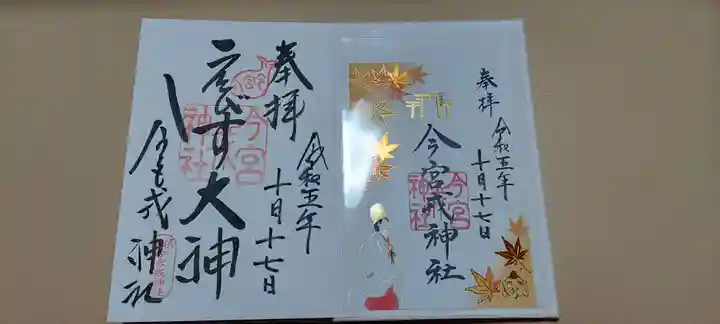 奉拝
令和五年
十月十七日
ゑびす大神
今宮戎神社
今宮
戎
神社
奉拝
令和五年
十月十七日
今宮戎神社
今宮
神社